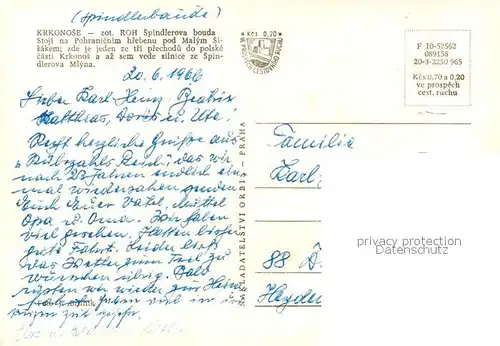 (Spindlerbaude)
KRKONOŠE — zot. ROH Špindlerova bouda
Stojí na Pohraničním hřebenu pod Malým Ši-
šákem; zde je jeden ze tří přechodů do polské
části Krkonoš a až sem vede silnice ze Špin-
dlerova Mlýna.
20.6.1966
Liebe Karl Heinz, Beatrix
Matthias, Doris u. Ute!
Recht herzliche Grüße aus
„Rübezahls Reich", das wir
nach 23 Jahren endlich ein-
mal wiedersahen senden
Euch Euer Vater, Mutter
Opa u. Oma. Wir haben
viel gesehen. Hatten bisher
gute Fahrt. Leider ließ
das Wetter zum Teil zu
wünschen übrig. Bald
rüsten wir wieder zur Heim
haben viel in
Kčs 0,20
VE PROSPĚCH CESTOVNÍHO RUCHU
F 10-52562
089158
20-3-2250 965
Kčs 0,70 a 0,20
ve prospěch
cest. ruchu
NAKLADATELSTVÍ ORBIS - PRAHA
Familie
Karl
88
Heyden
privacy protection
copyright protection